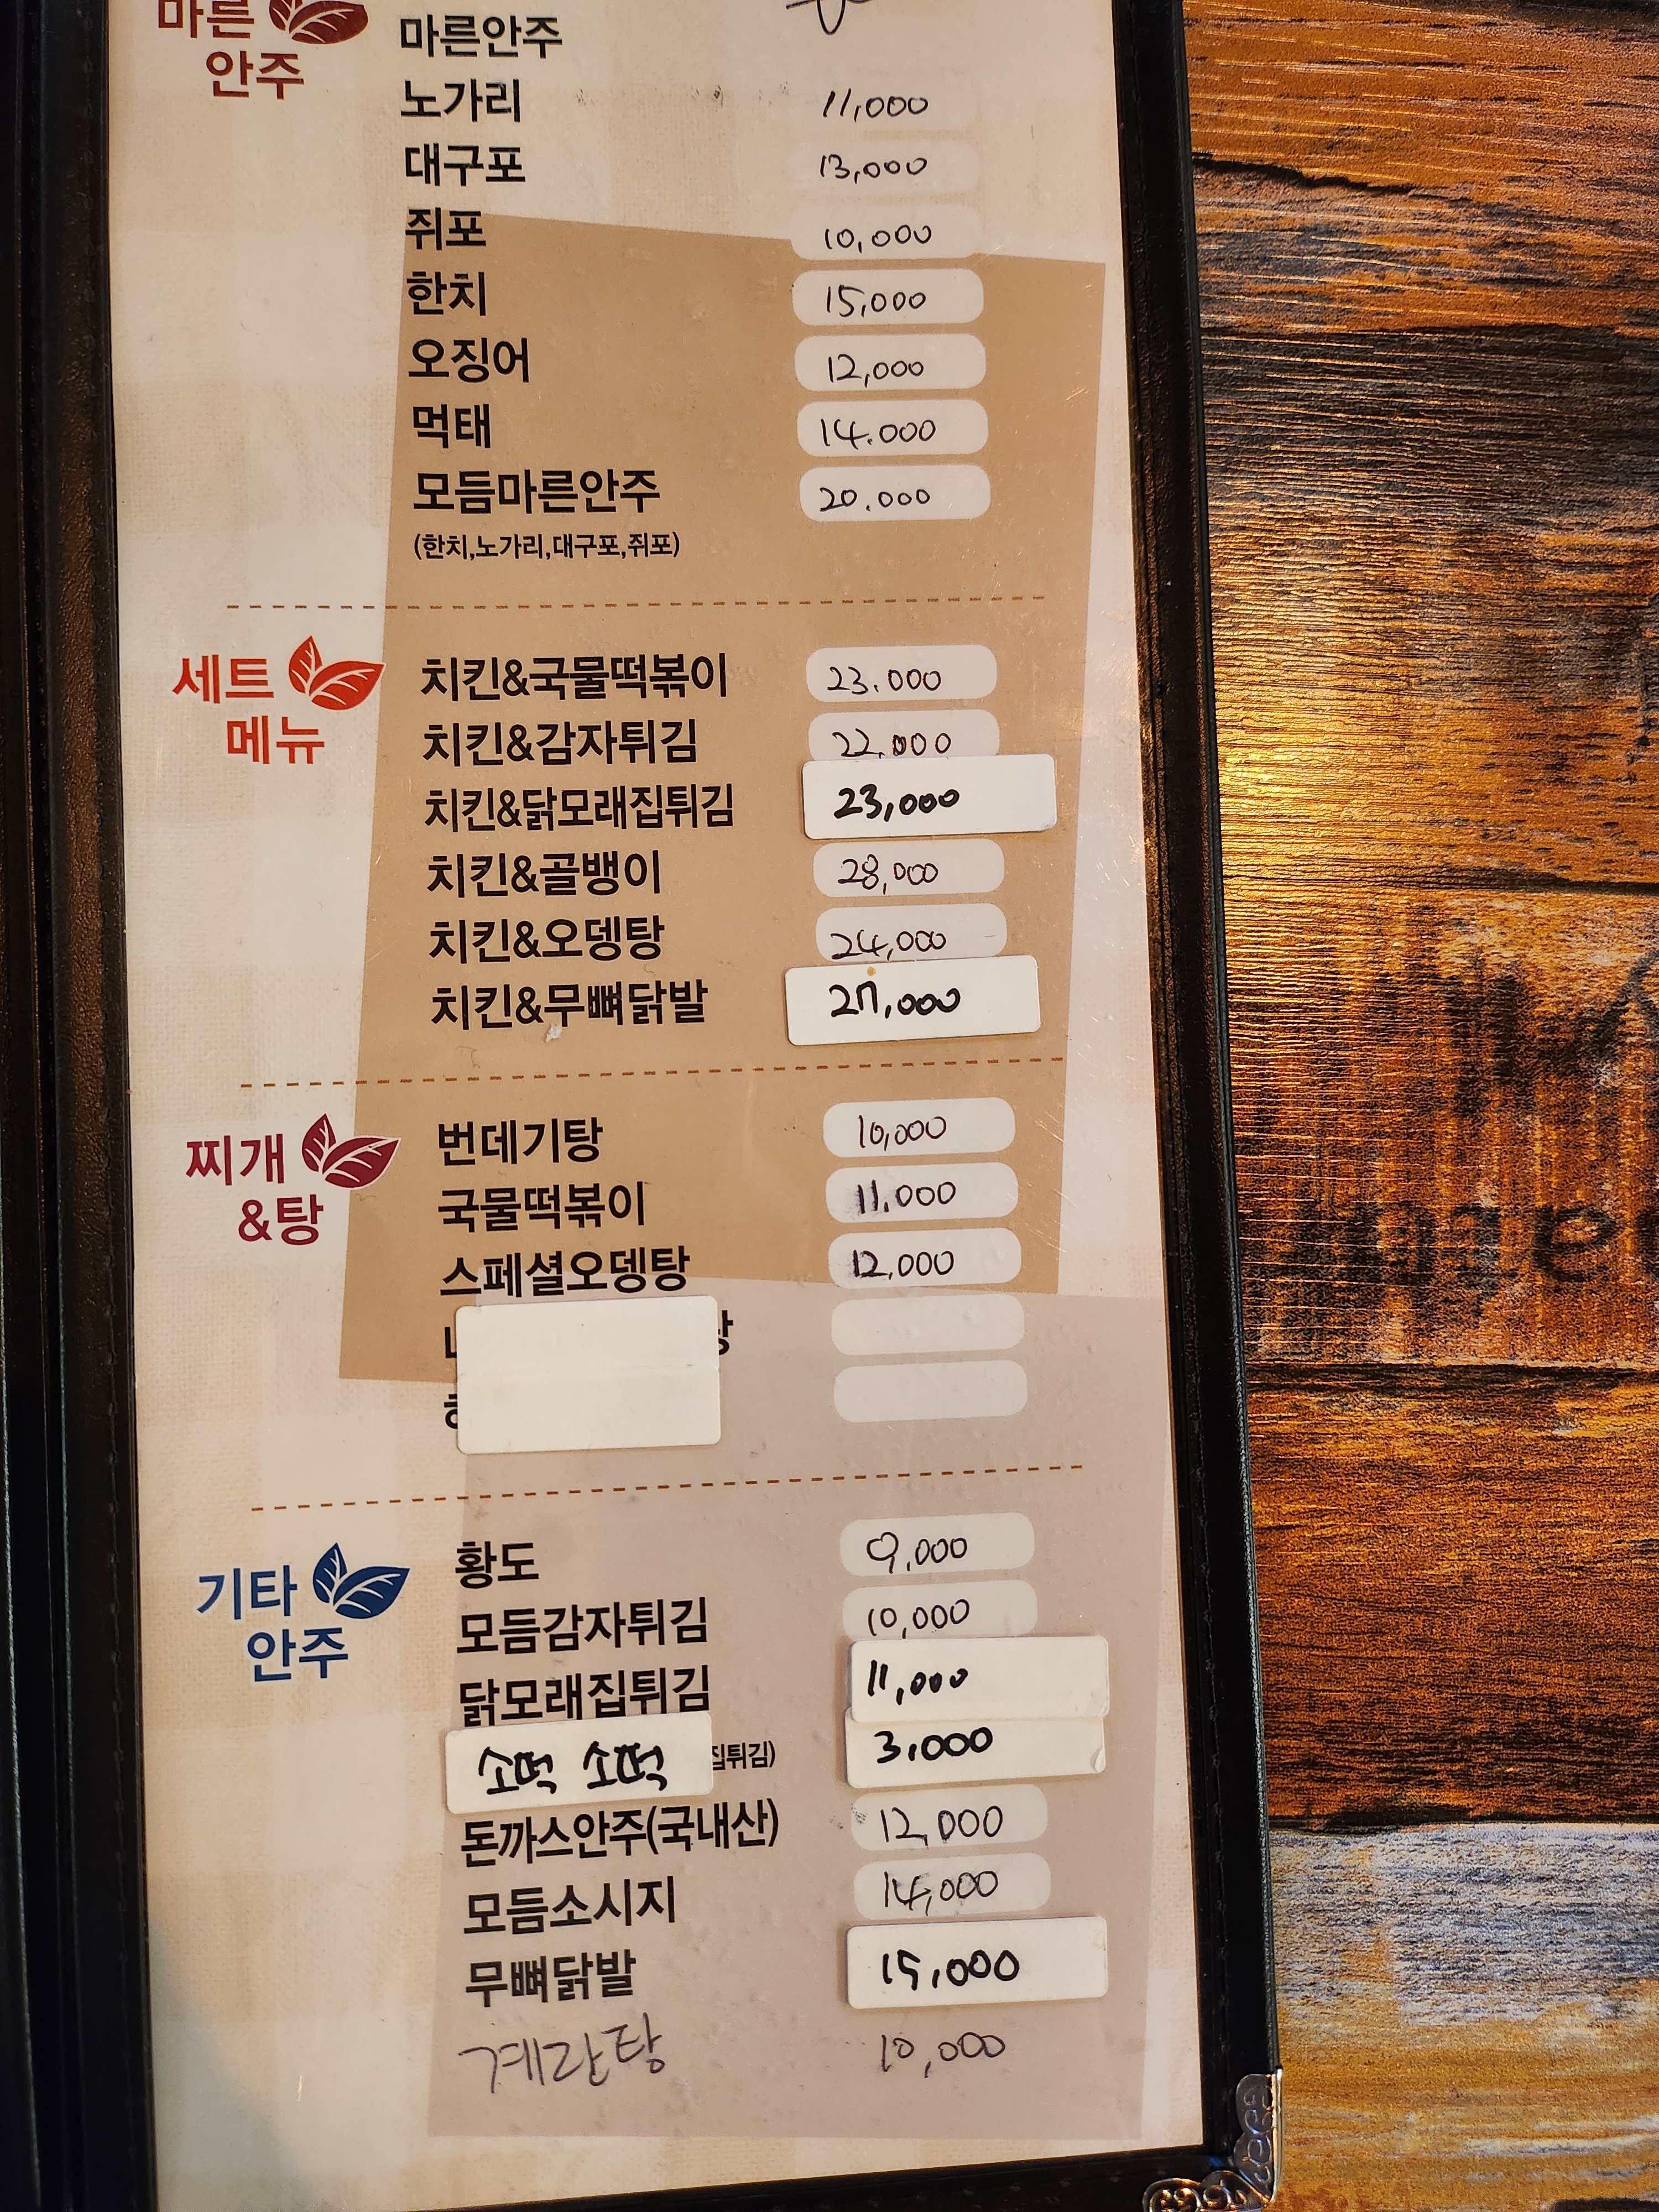 마른
안주
마른안주
노가리 11,000
대구포 13,000
쥐포 10,000
한치 15,000
오징어 12,000
먹태 14.000
모듬마른안주 20.000
(한치,노가리,대구포,쥐포)
세트
메뉴
치킨&국물떡볶이 23.000
치킨&감자튀김 22.000
치킨&닭모래집튀김 23,000
치킨&골뱅이 28,000
치킨&오뎅탕 24,000
치킨&무뼈닭발 27,000
찌개
&탕
번데기탕 10,000
국물떡볶이 11,000
스페셜오뎅탕 12,000
기타
안주
황도 9,000
모듬감자튀김 10,000
닭모래집튀김 11,000
소떡 소떡 집튀김) 3,000
돈까스안주(국내산) 12,000
모듬소시지 14,000
무뼈닭발 15,000
계란탕 10,000